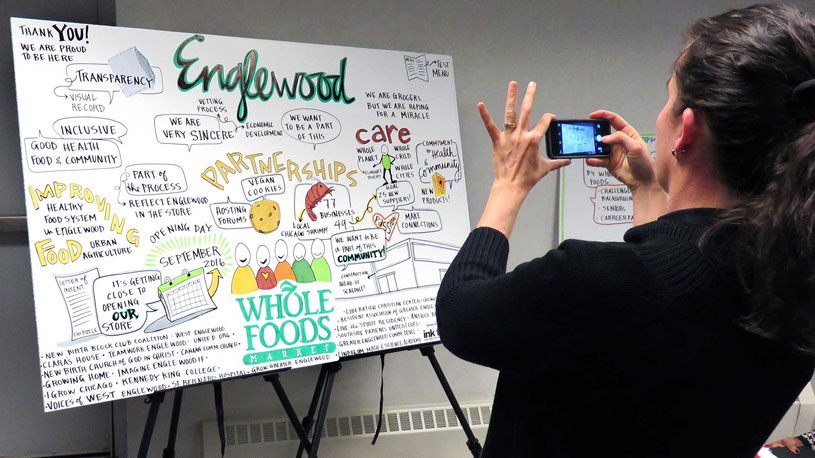 THANK YOU!
WE ARE PROUD
TO BE HERE
TRANSPARENCY
VISUAL
RECORD
Englewood
MENU
TEST
MENU
VETTING
PROCESS
WE ARE
VERY SINCERE
ECONOMIC
DEVELOPMENT
WE WANT
TO BE A PART
OF THIS
WE ARE GROCERS,
BUT WE ARE HOPING
FOR A MIRACLE
INCLUSIVE
GOOD HEALTH
FOOD & COMMUNITY
PART OF
THE PROCESS
REFLECT ENGLEWOOD
IN THE STORE
PARTNERSHIPS
VEGAN
COOKIES
HOSTING
FORUMS
LOCAL
CHICAGO SHRIMP
77
BUSINESSES
49
care
WHOLE
PLANET
ELIMINATE
POVERTY
WHOLE
CITIES
GOAL
25 NEW
SUPPLIERS!
COMMITMENT
to Health
& Community
NEW
PRODUCTS!
MAKE
CONNECTIONS
WE WANT TO BE
A PART OF THIS
COMMUNITY!
CONSTRUCTION
AHEAD OF
SCHEDULE!
IMPROVING
HEALTHY
FOOD SYSTEM
in ENGLEWOOD
FOOD
URBAN
AGRICULTURE
OPENING DAY
SEPTEMBER
2016
LETTER OF
INTENT
CHIPOTLE
IT'S GETTING
CLOSE TO
OPENING
OUR
STORE
WHOLE
FOODS
MARKET
• NEW BIRTH BLOCK CLUB COALITION • WEST ENGLEWOOD
CLARAS HOUSE • TEAMWORK ENGLEWOOD • UNITED ORG
• NEW BIRTH CHURCH OF GOD IN CHRIST • CANAAN COMM CHURCH
• GROWING HOME • IMAGINE ENGLEWOOD IF •
• I GROW CHICAGO • KENNEDY KING COLLEGE •
VOICES OF WEST ENGLEWOOD • ST. BERNARD HOSPITAL • GROW GREATER ENGLEWOOD
• LIBERATION CHRISTIAN CENTER •
RESIDENT ASSOCIATION OF GREATER
LIVE the SPIRIT RESIDENCY •
SOUTHSIDE PARENTS UNITED
GREATER ENGLEWOOD COMM
LINDBLOM MATH & SCIENCE ACADEMY
ink
BY WHO
FOODS
CHALLENG
BACKGROUN
SENIORS